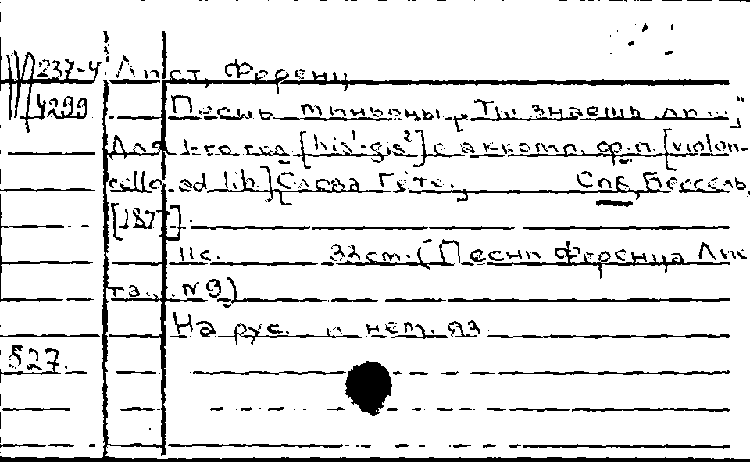 237-4 Лист, Ференц
4299 Песнь Миньоны „Ты знаешь ли..."
Для 1-го гол. [his¹-gis²] с аккомп. ф.п. [violon-
cello ad lib.] Слова Гете. Спб, Бессель,
[187 ].
11с. 33 см. (Песни Ференца Лис
та... №9)
На рус. и нем. яз
527.